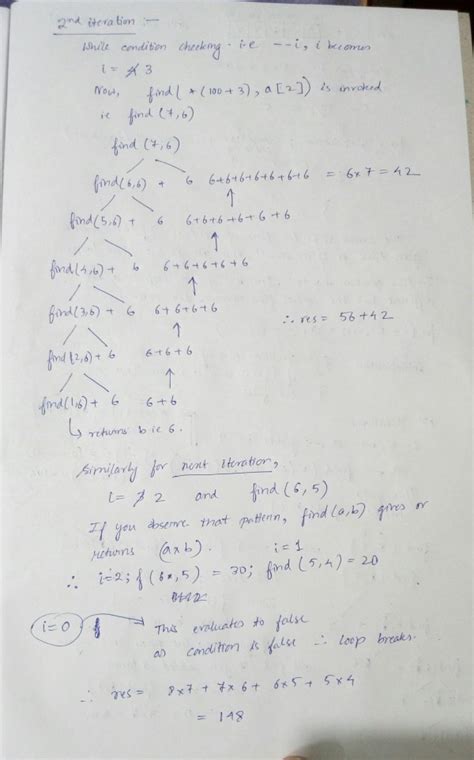 2nd iteration :-
While condition checking. i.e --i, i becomes
i = 4 3
Now, find(*(100+3), a[2]) is invoked
ie find (7,6)
find (7,6)
find(6,6) + 6 6+6+6+6+6+6+6 = 6x7 = 42
find(5,6) + 6 6+6+6+6+6+6
find(4,6) + 6 6+6+6+6+6
find(3,6) + 6 6+6+6+6
∴ res = 56+42
find(2,6) + 6 6+6+6
find(1,6) + 6 6+6
↳ returns b ie 6.
Similarly for next iteration,
i = 3 2 and find (6,5)
If you observe that pattern, find(a,b) gives or
returns (axb). i=1
∴ i=2; f(6x,5) = 30; find (5,4) = 20
i=0 → This evaluates to false
as condition is false ∴ loop breaks.
∴ res = 8x7 + 7x6 + 6x5 + 5x4
= 148